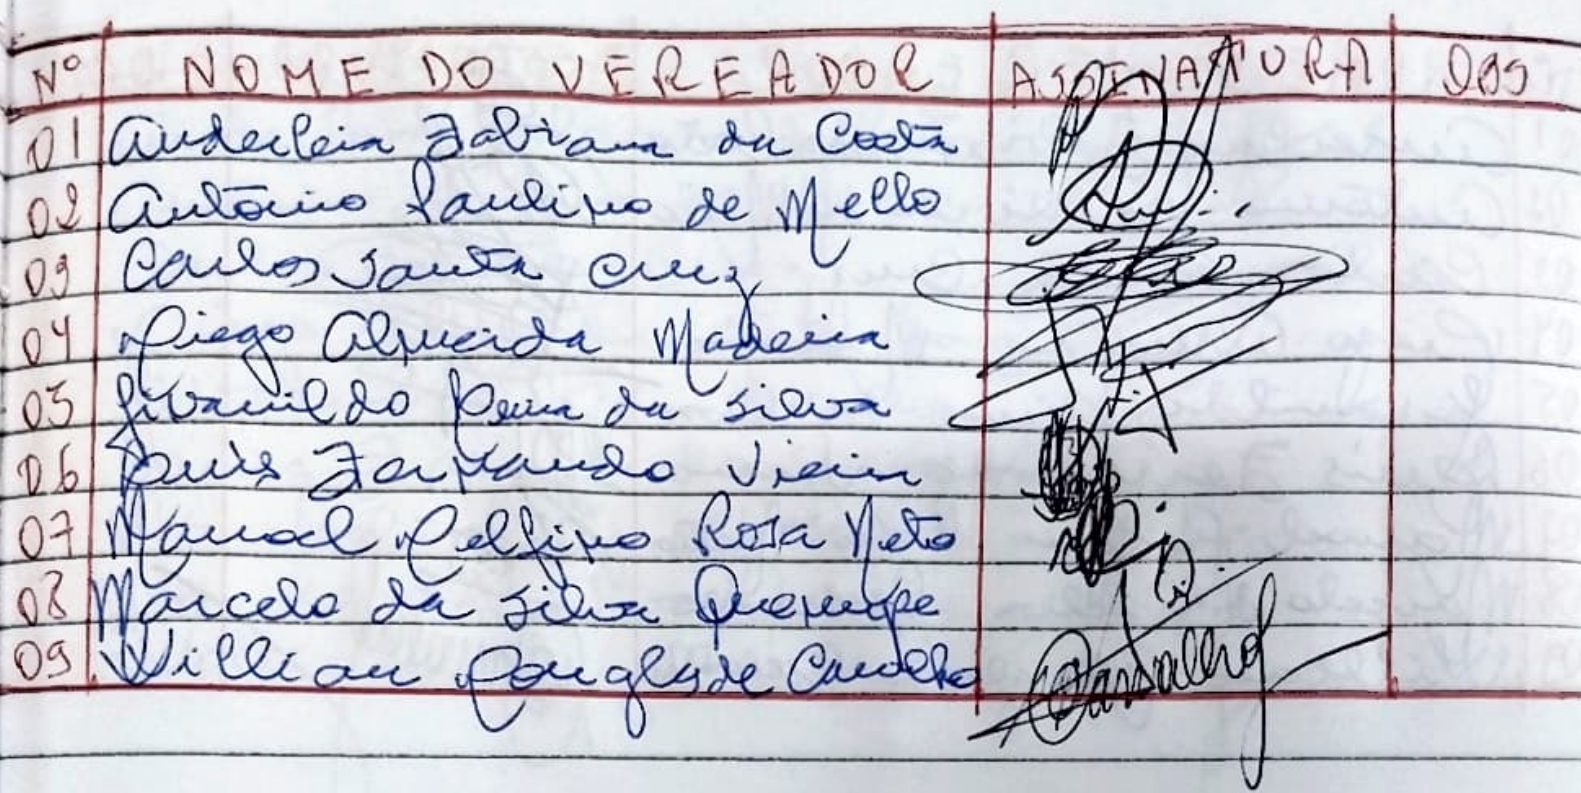 Nº NOME DO VEREADOR ASSINATURA OBS
01 Anderleia Fabiana da Costa
02 Antônio Paulino de Mello
03 Carlos Santa Cruz
04 Diego Almeida Madeira
05 Givanildo da Silva
06 Luis Fernando Vieira
07 Manoel Delfino Rosa Neto
08 Marcelo da Silva
09 Willian Douglas de Carvalho Carvalho